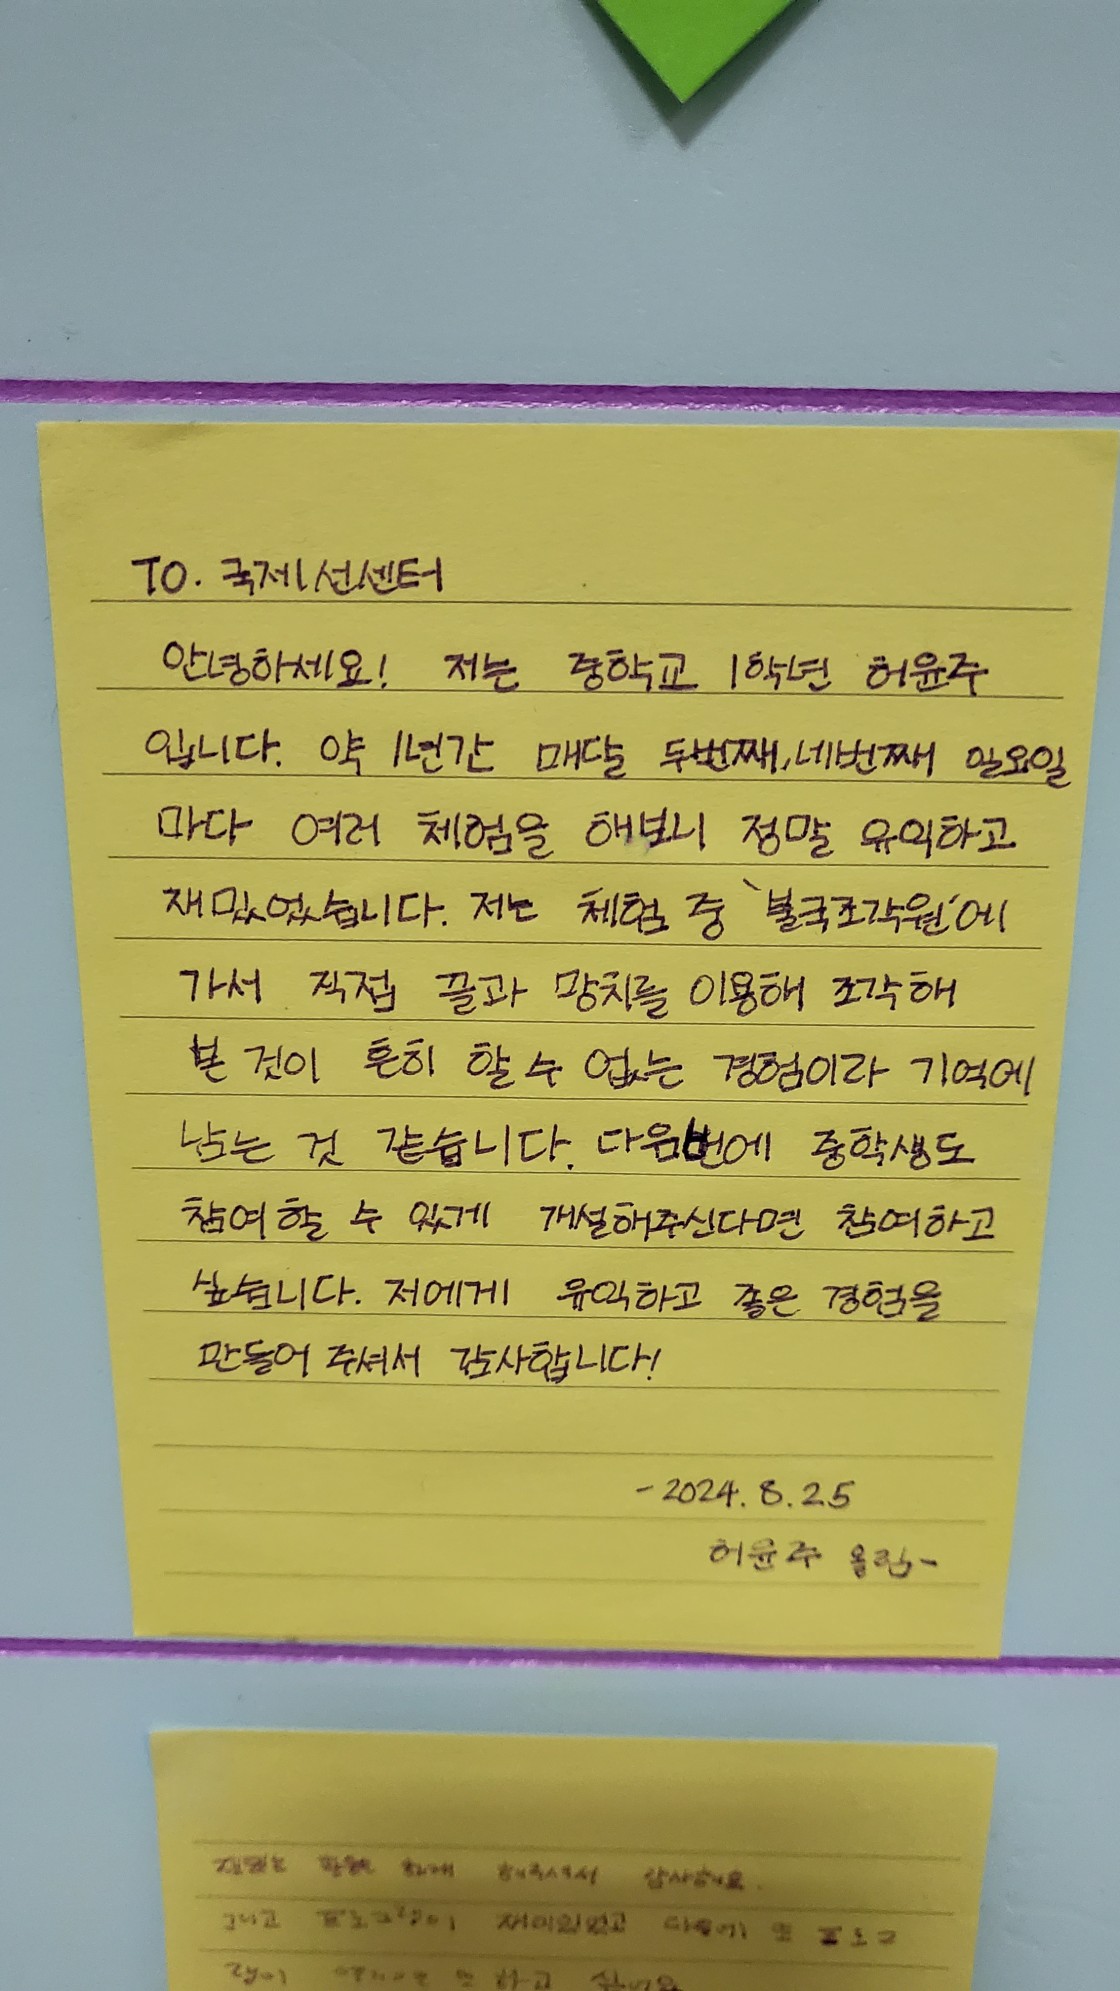 TO. 국제선센터
안녕하세요! 저는 중학교 1학년 허윤주
입니다. 약 1년간 매달 두번째, 네번째 일요일
마다 여러 체험을 해보니 정말 유익하고
재밌었습니다. 저는 체험 중 '불국조각원'에
가서 직접 끌과 망치를 이용해 조각해
본 것이 흔히 할 수 없는 경험이라 기억에
남는 것 같습니다. 다음번에 중학생도
참여할 수 있게 개설해주신다면 참여하고
싶습니다. 저에게 유익하고 좋은 경험을
만들어 주셔서 감사합니다!
-2024.8.25
허윤주 올림-
해주셔서 감사해요.
그리고 프로그램이 재미있었고 다음에 또 프로그
램이 또 하고 싶어요